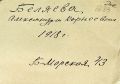 Беляева
Александра Корнеевна
1918 г.
Б. Морская, 43